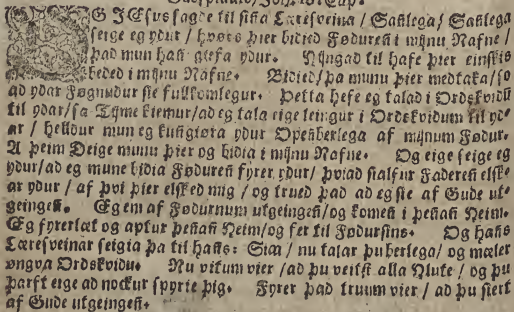 OG JEsus sagde til sina Læresveina / Sannlega / Sannlega
seige eg ydur / hvørs þier bidied Føduren i mijnu Nafne /
þad mun hann giefa ydur. Hijngad til hafe þier einskis
beded i mijnu Nafne. Bidied / þa munu þier medtaka / so
ad ydar Føgnudur sie fullkomlegur. Þetta hefe eg talad i Ordskvidū
til ydar / sa Tijme kiemur / ad eg tala eige leingur i Ordskvidum til yd-
ar / helldur mun eg kunngiøra ydur Openberlega af mijnum Fødur.
A þeim Deige munu þier og bidia i mijnu Nafne. Og eige seige eg
ydur / ad eg mune bidia Føduren fyrer ydur / þviad sialfur Faderen elsk-
ar ydur / af þvi þier elsked mig / og trued þad ad eg sie af Gude ut-
geingen. Eg em af Fødurnum utgeingen / og komen i þennan Heim.
Eg fyrerlæt og aptur þennan Heim / og fer til Fødursins. Og hans
Læresveinar seigia þa til hans: Siaa / nu talar þu berlega / og mæler
øngva Ordskvidu. Nu vitum vier / ad þu veitst alla Hlute / og þu
þarft eige ad nockur spyrie þig. Fyrer þad truum vier / ad þu siert
af Gude utgeingen.